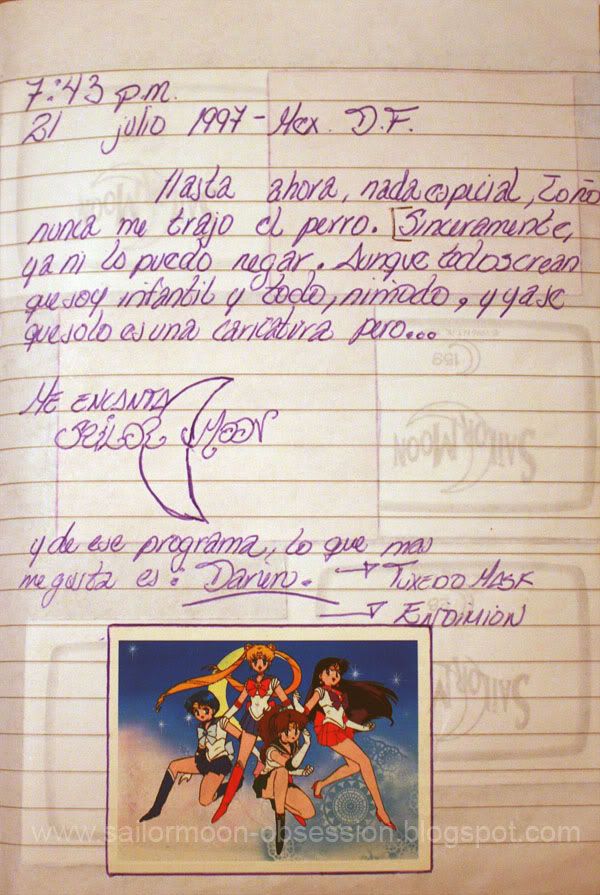 7:43 p.m.
21 julio 1997 - Mex. D.F.
Hasta ahora, nada especial, Toño
nunca me trajo el perro. [Sinceramente,
ya ni lo puedo negar. Aunque todos crean
que soy infantil y todo, nimodo, y ya se
que solo es una caricatura pero...
ME ENCANTA
SAILOR MOON
y de ese programa, lo que mas
me gusta es: Darien. → TUXEDO MASK
→ ENDIMION
SAILOR MOON
159
SAILOR MOON
www.sailormoon-obsession.blogspot.com